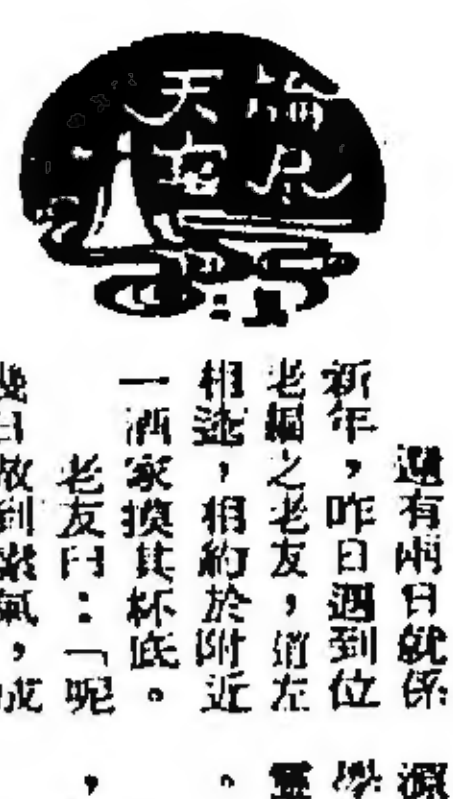 天
還有兩日就係
新年，昨日遇到位
老編之老友，道左
相逢，相約於附近
一酒家摸其杯底。
老友曰：「呢
幾日放到氣，成
源
學
靈